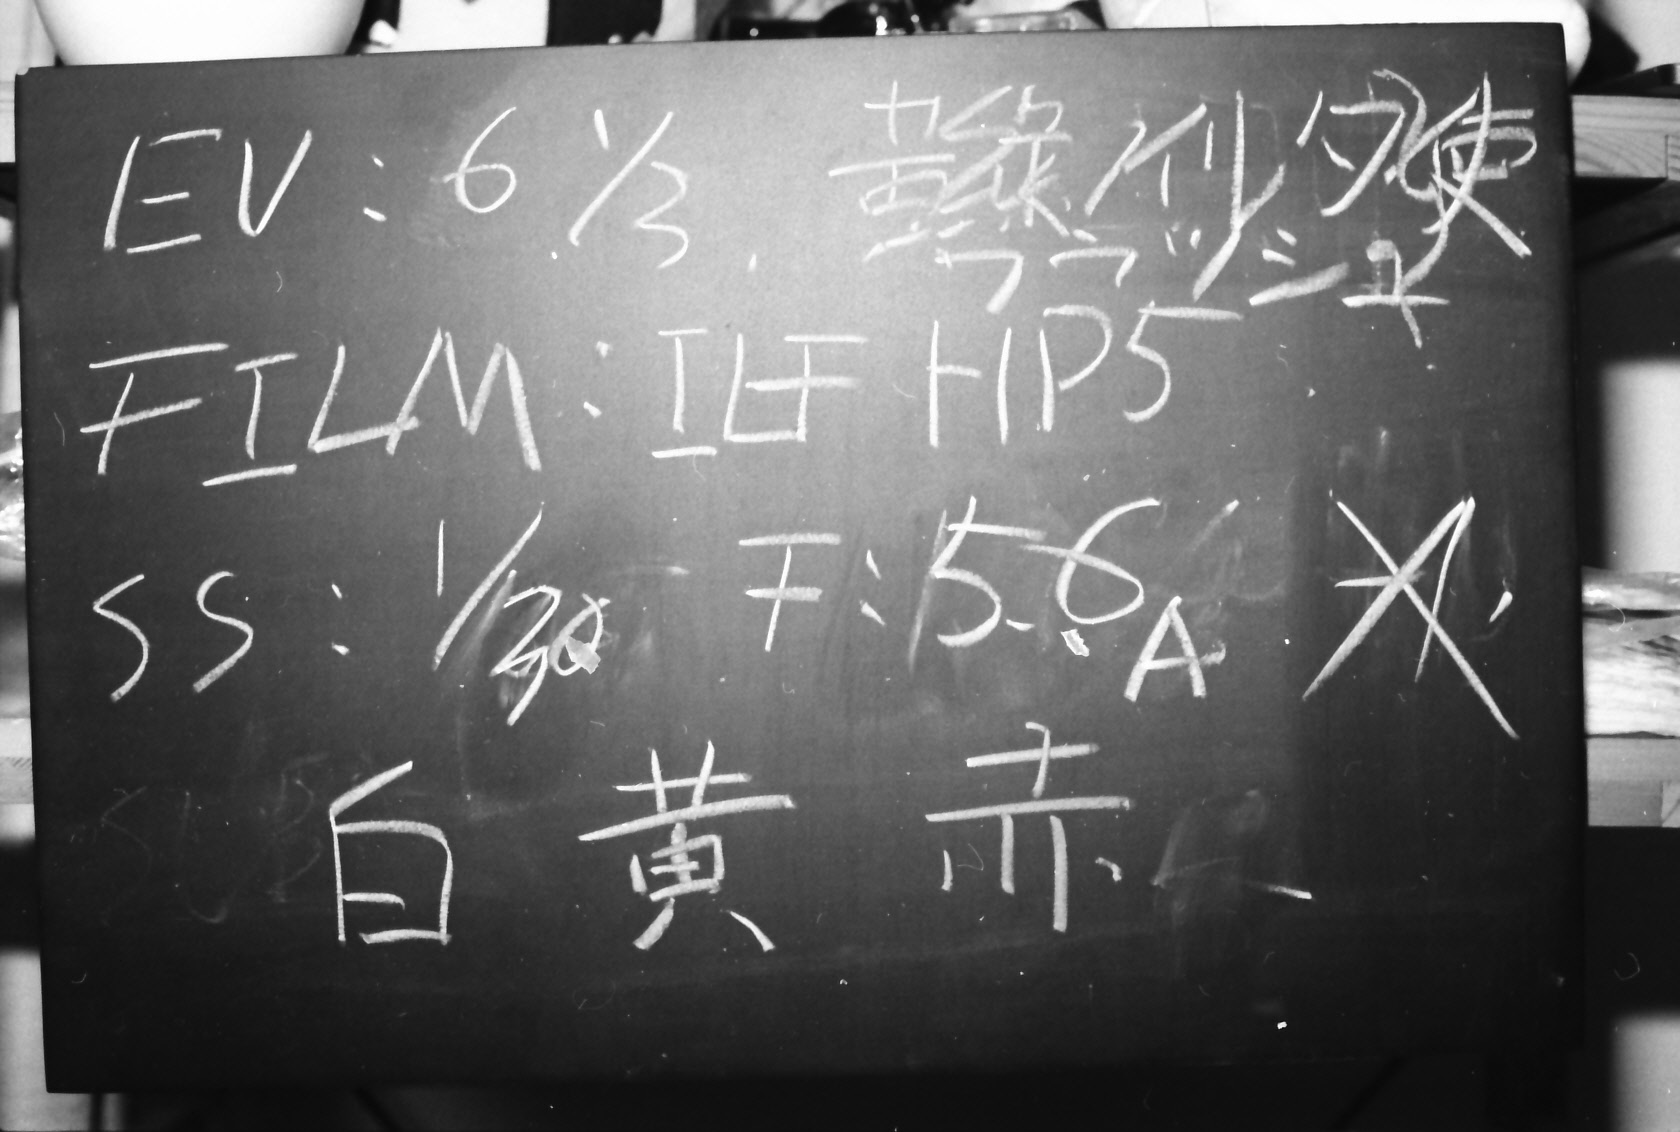 EV : 6 1/3
フラッシュ
FILM : ILF HP5
SS : 1/30 F : 5.6 A
白 黄 赤